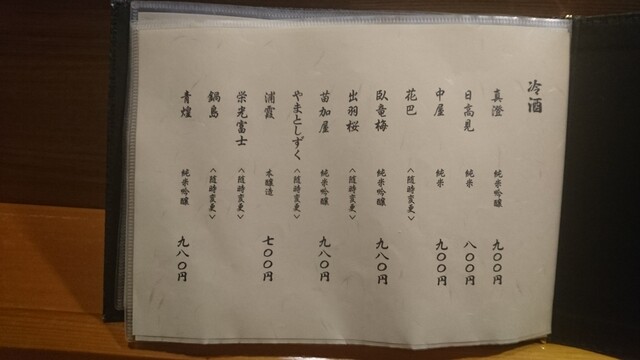 冷酒
真澄 純米吟醸 九〇〇円
日高見 純米 八〇〇円
中屋 純米 九〇〇円
花巴 <随時変更>
臥竜梅 純米吟醸 九八〇円
出羽桜 <随時変更>
苗加屋 純米吟醸 九八〇円
やまとしずく <随時変更>
浦霞 本醸造 七〇〇円
栄光富士 <随時変更>
鍋島 <随時変更>
青煌 純米吟醸 九八〇円